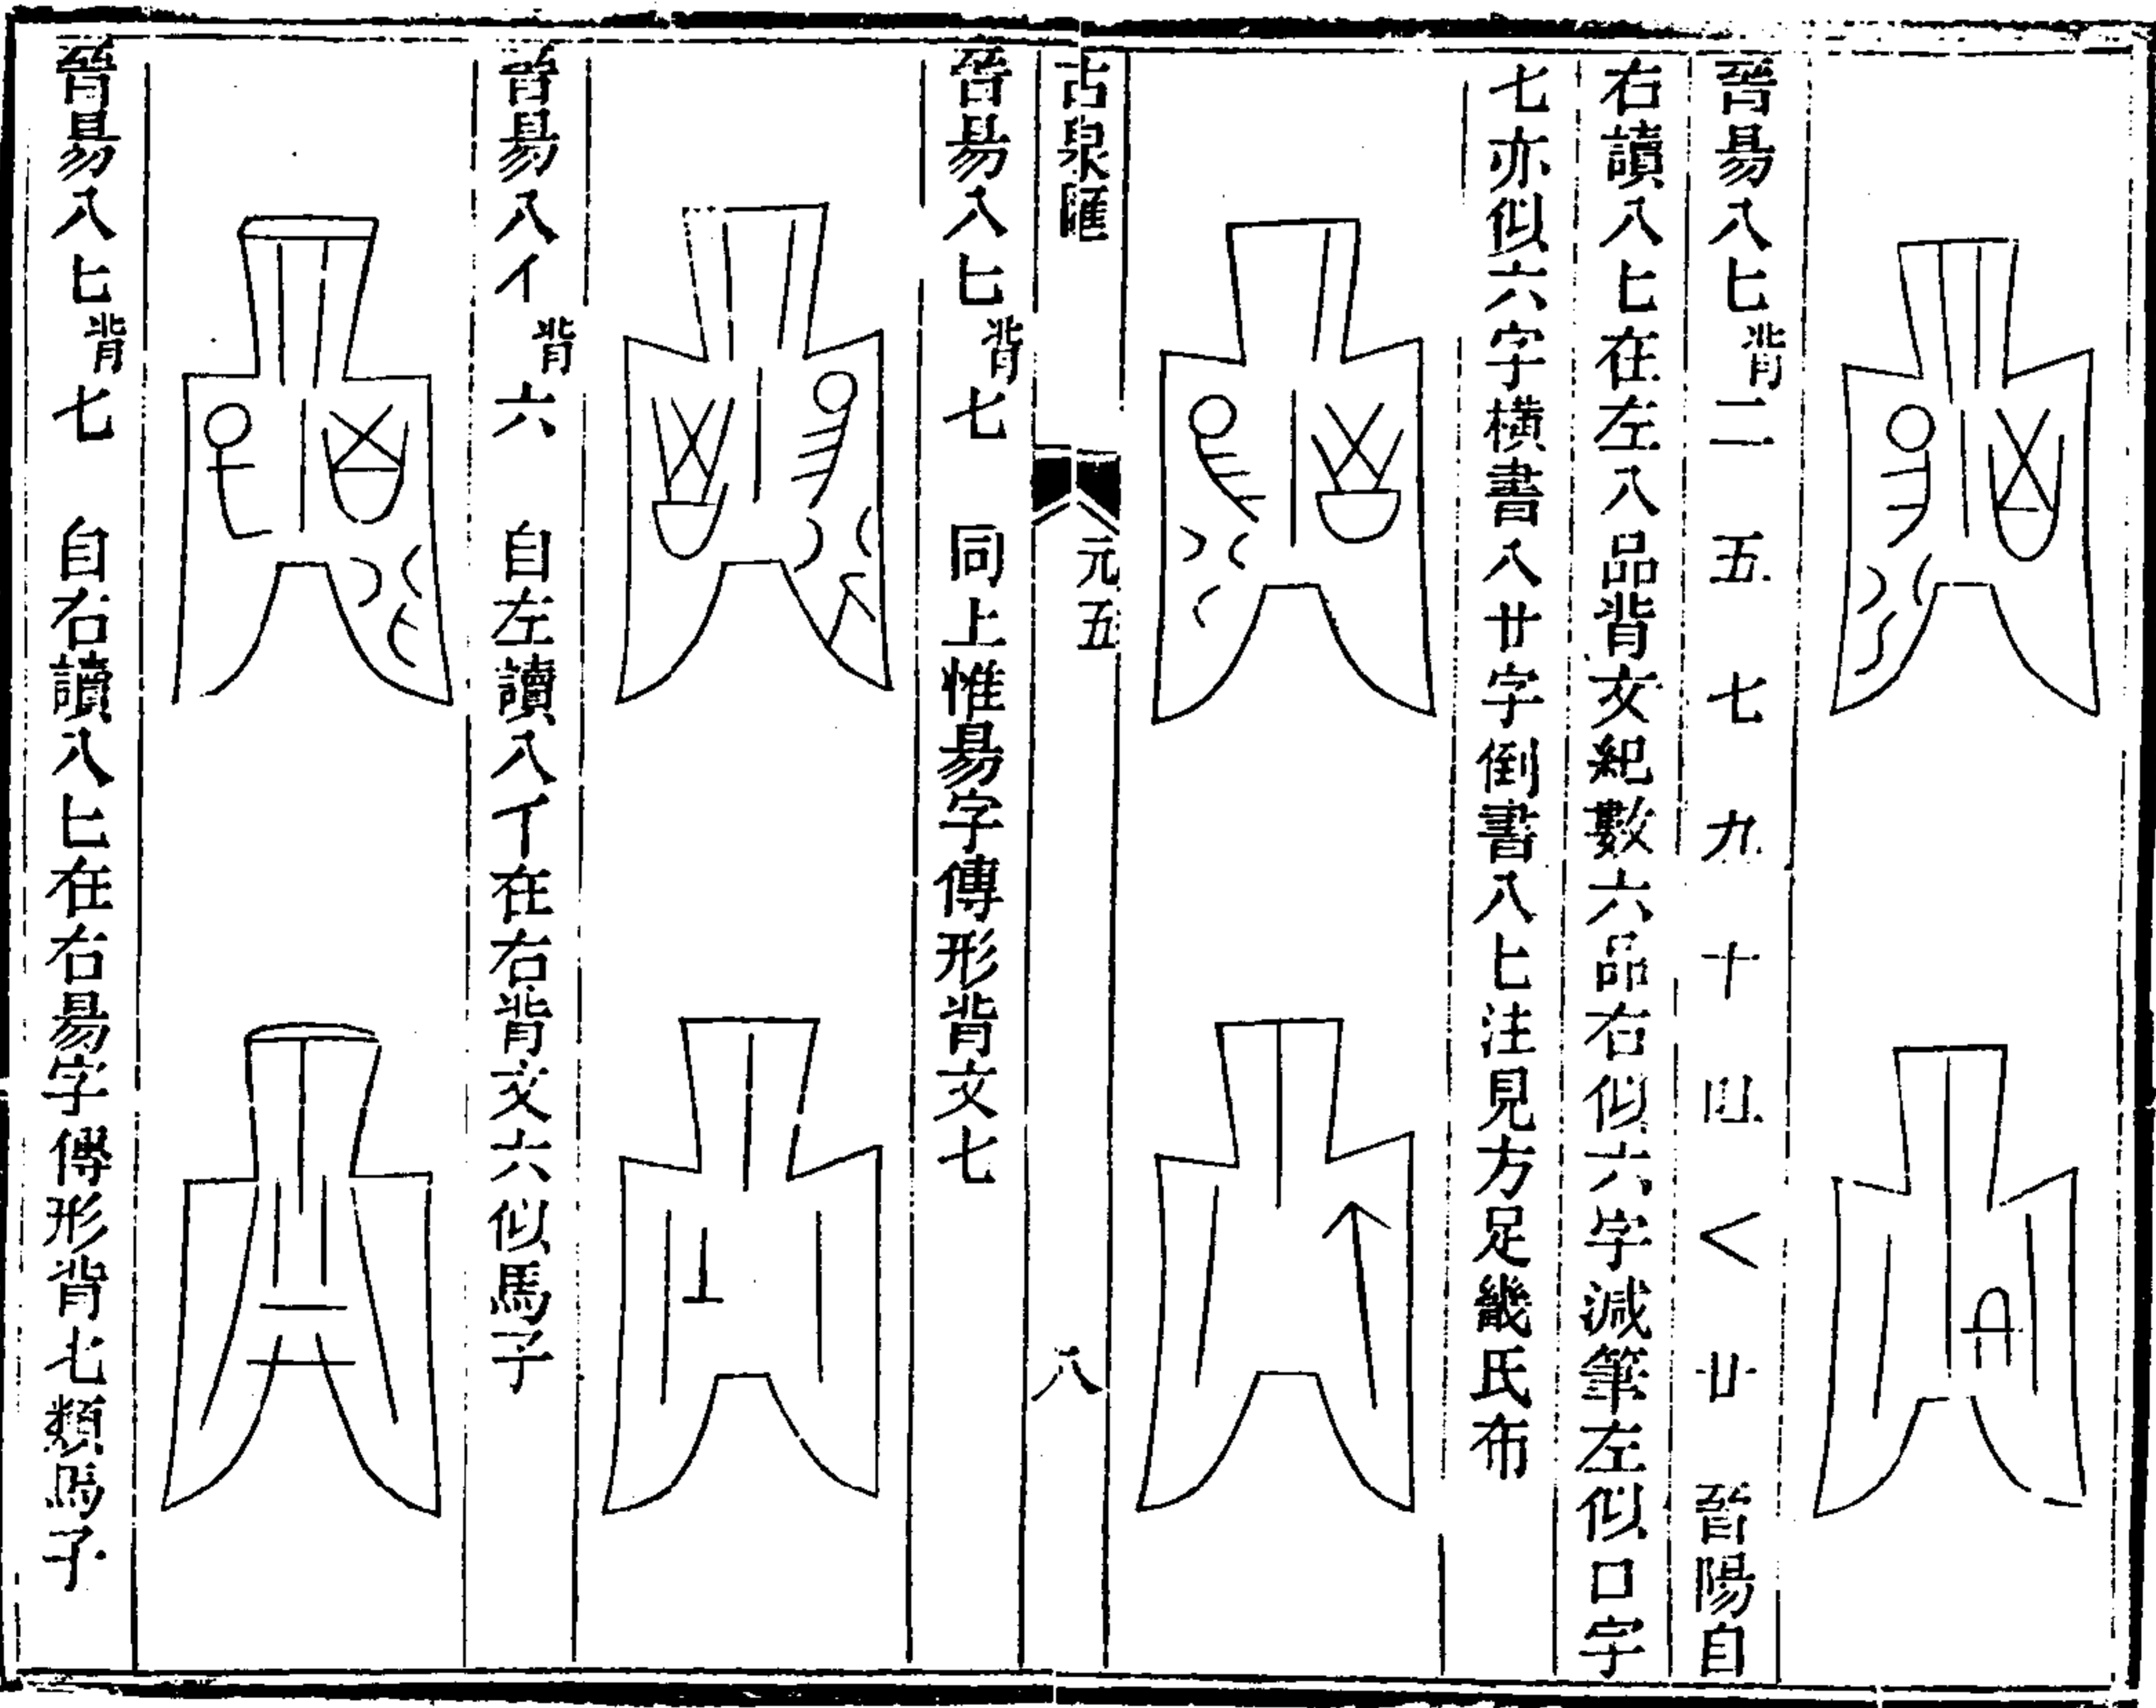 晉昜八匕背二 五 七 九 十 𠃢 く 廿 晉陽自
右讀八匕在左八品背文紀數六品右似六字減筆左似口字
七亦似六字橫書八廿字倒書八匕注見方足畿氏布
古泉匯 元五 八
晉昜八匕背七 同上惟昜字傳形背文七
晉昜八亻背六 自左讀八亻在右背文六似馬子
晉昜八匕背七 自右讀八匕在右昜字傳形背七類馬子